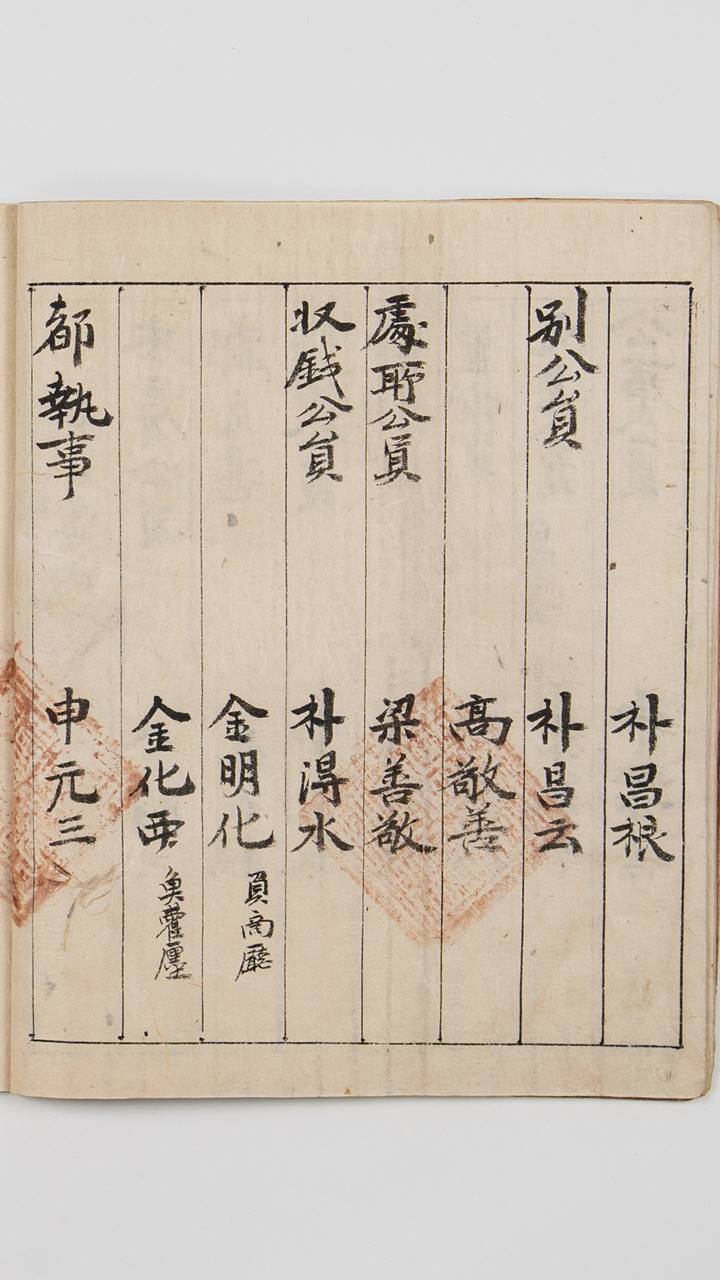 朴昌根
別公員 朴昌云
高敬善
處所公員 梁善敬
収錢公員 朴淂水
金明化 負商廳
金化西 魚藿廛
都執事 申元三